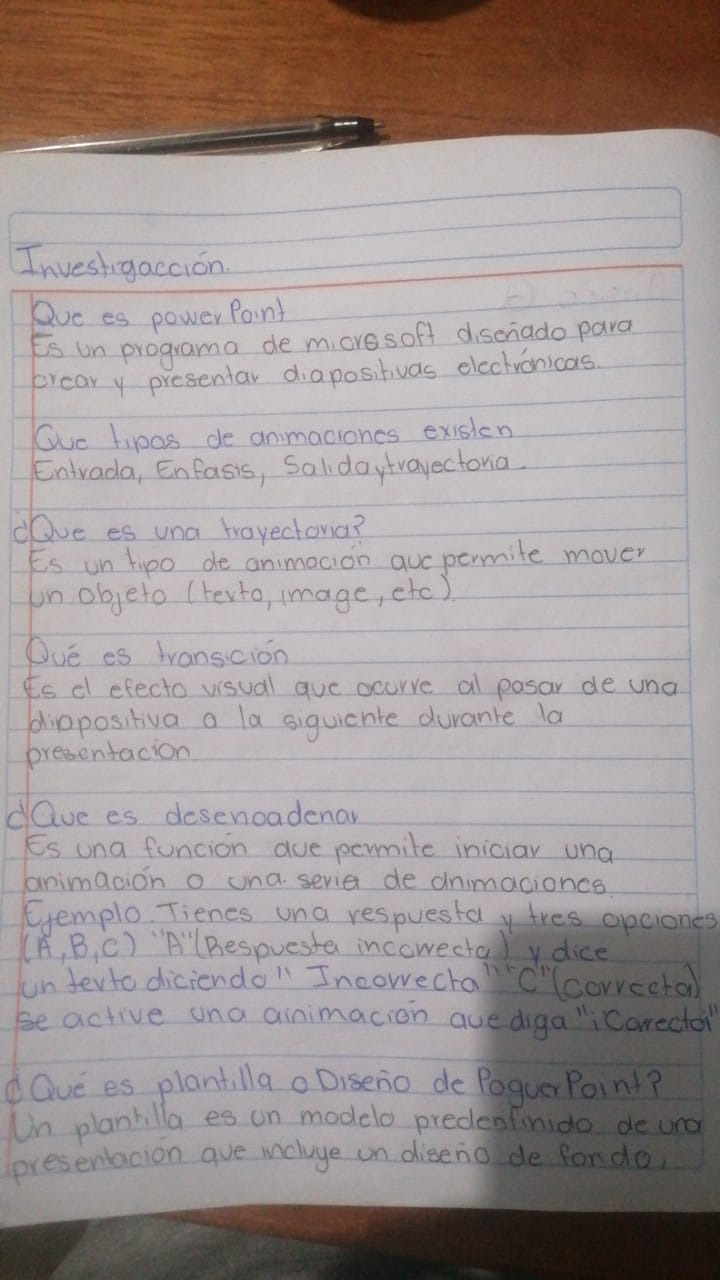 Investigacción.
Que es power Point
Es un programa de microsoft diseñado para
crear y presentar diapositivas electrónicas.
Que tipos de animaciones existen
Entrada, Enfasis, Salida y trayectoria.
¿Que es una trayectoria?
Es un tipo de animación que permite mover
un objeto (texto, image, etc)
Qué es transición
Es el efecto visual que ocurre al pasar de una
diapositiva a la siguiente durante la
presentacion
¿Que es desencadenar
Es una función que permite iniciar una
animación o una serie de animaciones.
Ejemplo. Tienes una respuesta y tres opciones
(A, B, C) "A" (Respuesta incorrecta) y dice
un texto diciendo "Incorrecta" "C" (correcta)
se active una animación que diga "¡Correcto!"
¿Qué es plantilla o Diseño de PoguerPoint?
Un plantilla es un modelo predenfinido de una
presentación que incluye un diseño de fondo,